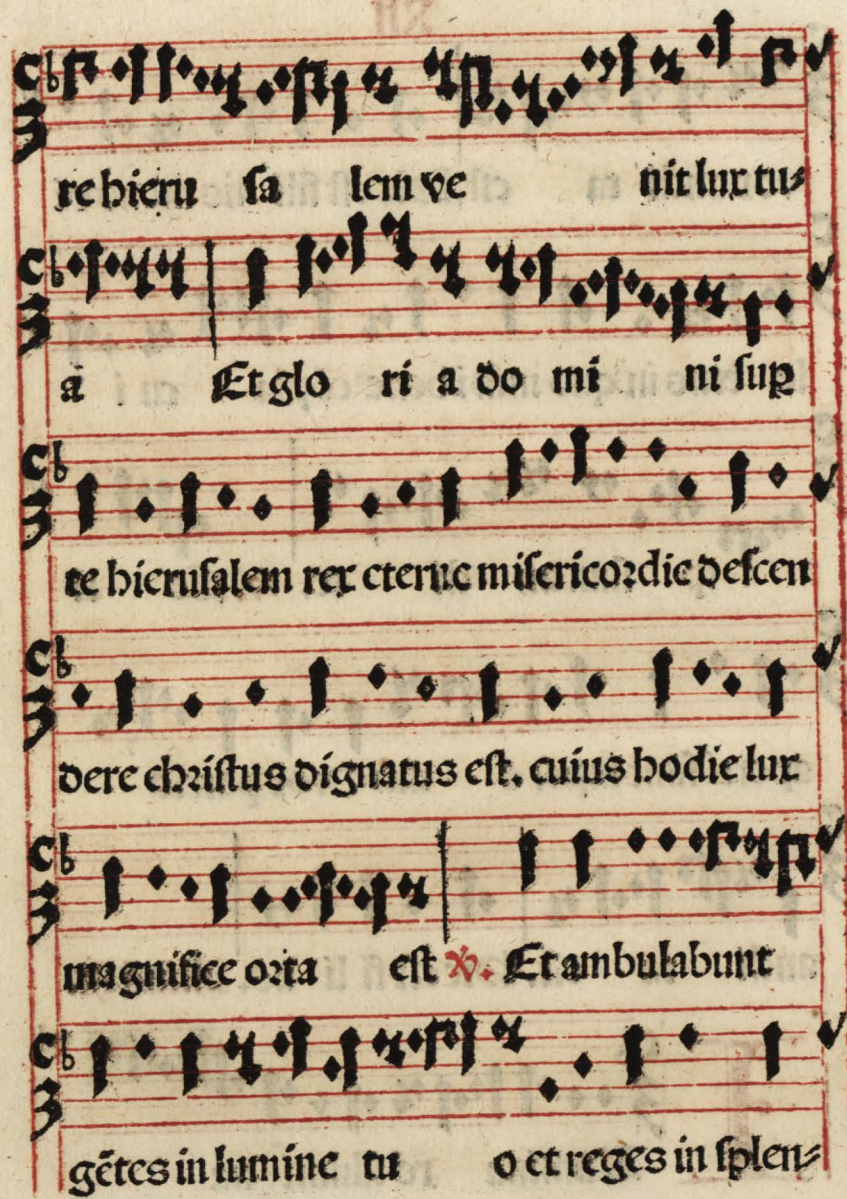 re hieru sa lem ve nit lux tu-
a Et glo ri a do mi ni sup
te hierusalem rex eterne misericordie descen
dere christus dignatus est. cuius hodie lux
magnifice orta est ℣. Et ambulabunt
gētes in lumine tu o et reges in splen-